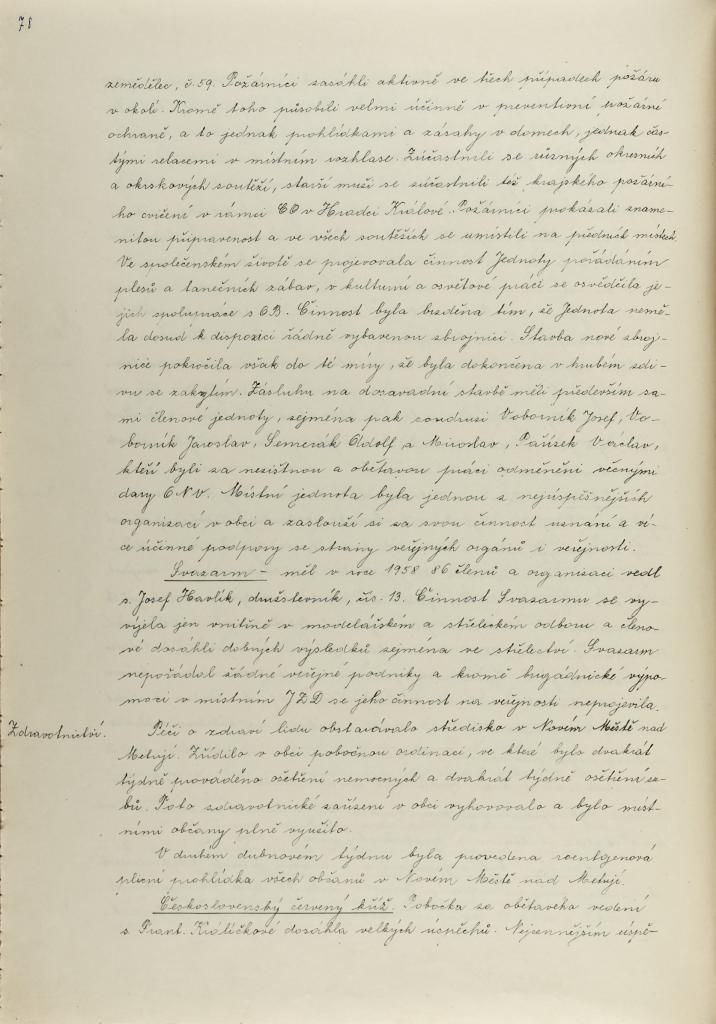 78
zemědělec, č. 59. Požárníci zasáhli aktivně ve třech případech požáru
v okolí. Kromě toho působili velmi účinně v preventivní požární
ochraně, a to jednak prohlídkami a zásahy v domech, jednak čas-
tými relacemi v místním rozhlase. Zúčastnili se různých okresních
a okrskových soutěží, starší muži se zúčastnili též krajského požární-
ho cvičení v rámci CO v Hradci Králové. Požárníci prokázali zname-
nitou připravenost a ve všech soutěžích se umístili na předních místech.
Ve společenském životě se projevovala činnost Jednoty pořádáním
plesů a tanečních zábav, v kulturní a osvětové práci se osvědčila je-
jich spolupráce s OB. Činnost byla brzděna tím, že Jednota nemě-
la dosud k dispozici řádně vybavenou zbrojnici. Stavba nové zbroj-
nice pokročila však do té míry, že byla dokončena v hrubém zdi-
vu se zakrytím. Zásluhu na dosavadní stavbě měli především sa-
mi členové jednoty, zejména pak soudruzi Voborník Josef, Vo-
borník Jaroslav, Semerák Adolf a Miroslav, Pařízek Václav,
kteří byli za nezištnou a obětavou práci odměněni věcnými
dary ONV. Místní jednota byla jednou z nejúspěšnějších
organizací v obci a zaslouží si za svou činnost uznání a ví-
ce účinné podpory se strany veřejných orgánů i veřejnosti.
Svazarm – měl v roce 1958 86 členů a organizaci vedl
s. Josef Havlík, družstevník, čís. 13. Činnost Svazarmu se vy-
víjela jen vnitřně v modelářském a střeleckém odboru a členo-
vé dosáhli dobrých výsledků zejména ve střelectví. Svazarm
nepořádal žádné veřejné podniky a kromě brigádnické výpo-
moci v místním JZD se jeho činnost na veřejnosti neprojevila.
Zdravotnictví.
Péči o zdraví lidu obstarávalo středisko v Novém Městě nad
Metují. Zřídilo v obci pobočnou ordinaci, ve které bylo dvakrát
týdně prováděno ošetření nemocných a dvakrát týdně ošetření zu-
bů. Toto zdravotnické zařízení v obci vyhovovalo a bylo míst-
ními občany plně využito.
V druhém dubnovém týdnu byla provedena roentgenová
plicní prohlídka všech občanů v Novém Městě nad Metují.
Československý červený kříž. Pobočka za obětavého vedení
s. Frant. Králíčkové dosáhla velkých úspěchů. Nejcennějším úspě-